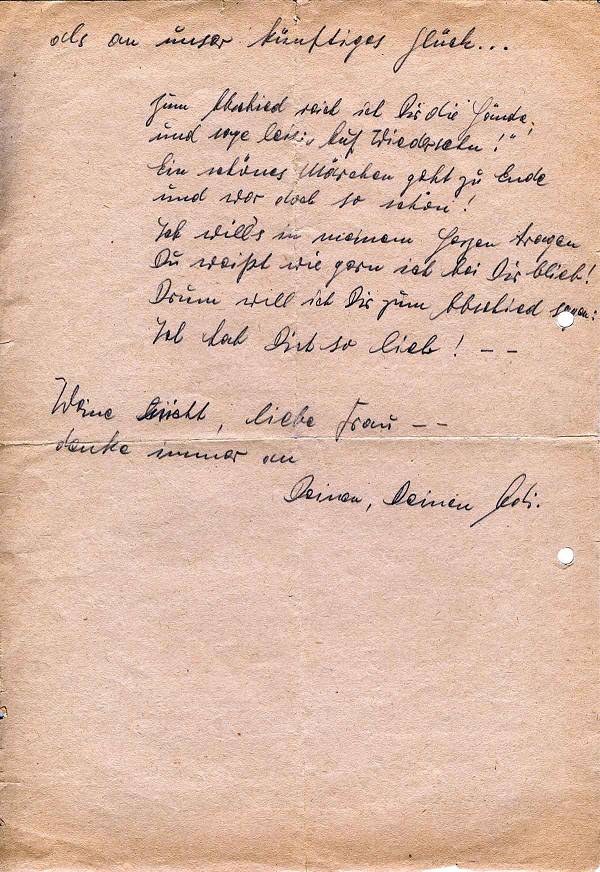 als an unser künftiges Glück...
Zum Abschied reich ich Dir die Hände
und sage leis: Auf Wiedersehn!"
Ein schönes Märchen geht zu Ende
und war doch so schön!
Ich will's in meinem Herzen tragen
Du weißt wie gern ich bei Dir blieb!
Drum will ich Dir zum Abschied sagen:
Ich hab Dich so lieb! - -
Weine nicht, liebe Frau - -
denke immer an
Deinen, Deinen